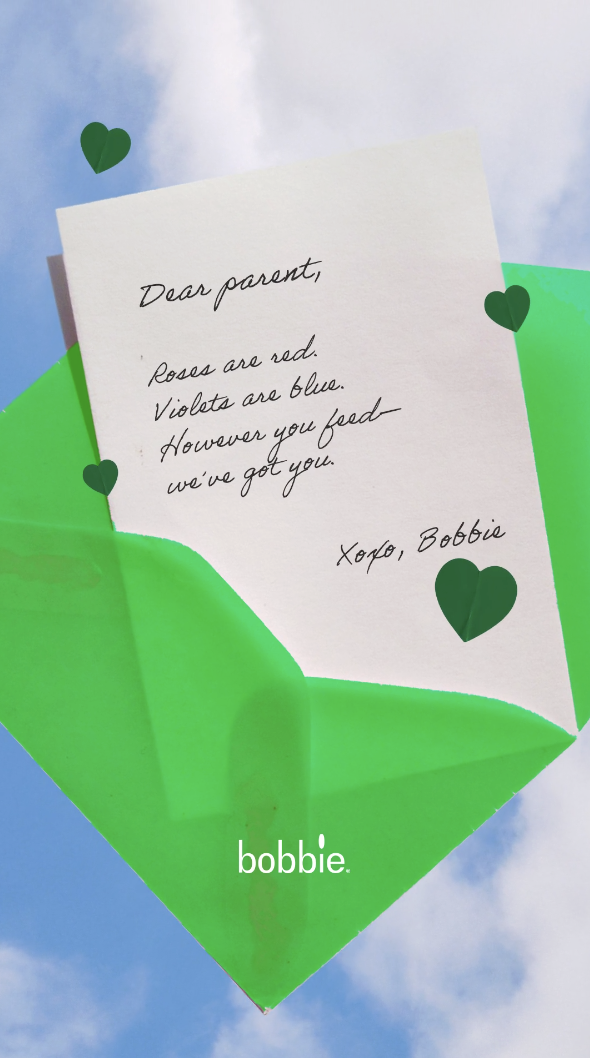 Dear parent,
Roses are red.
Violets are blue.
However you feed—
we've got you.
Xoxo, Bobbie
bobbie.